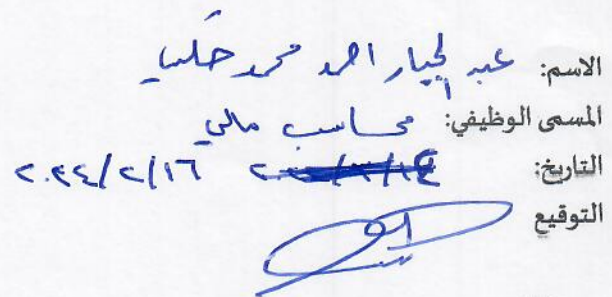 الاسم: عبد الجبار احمد محمد حلبا
المسمى الوظيفي: محاسب مالي
التاريخ: ٢٠٢٤/٢/١٦
التوقيع